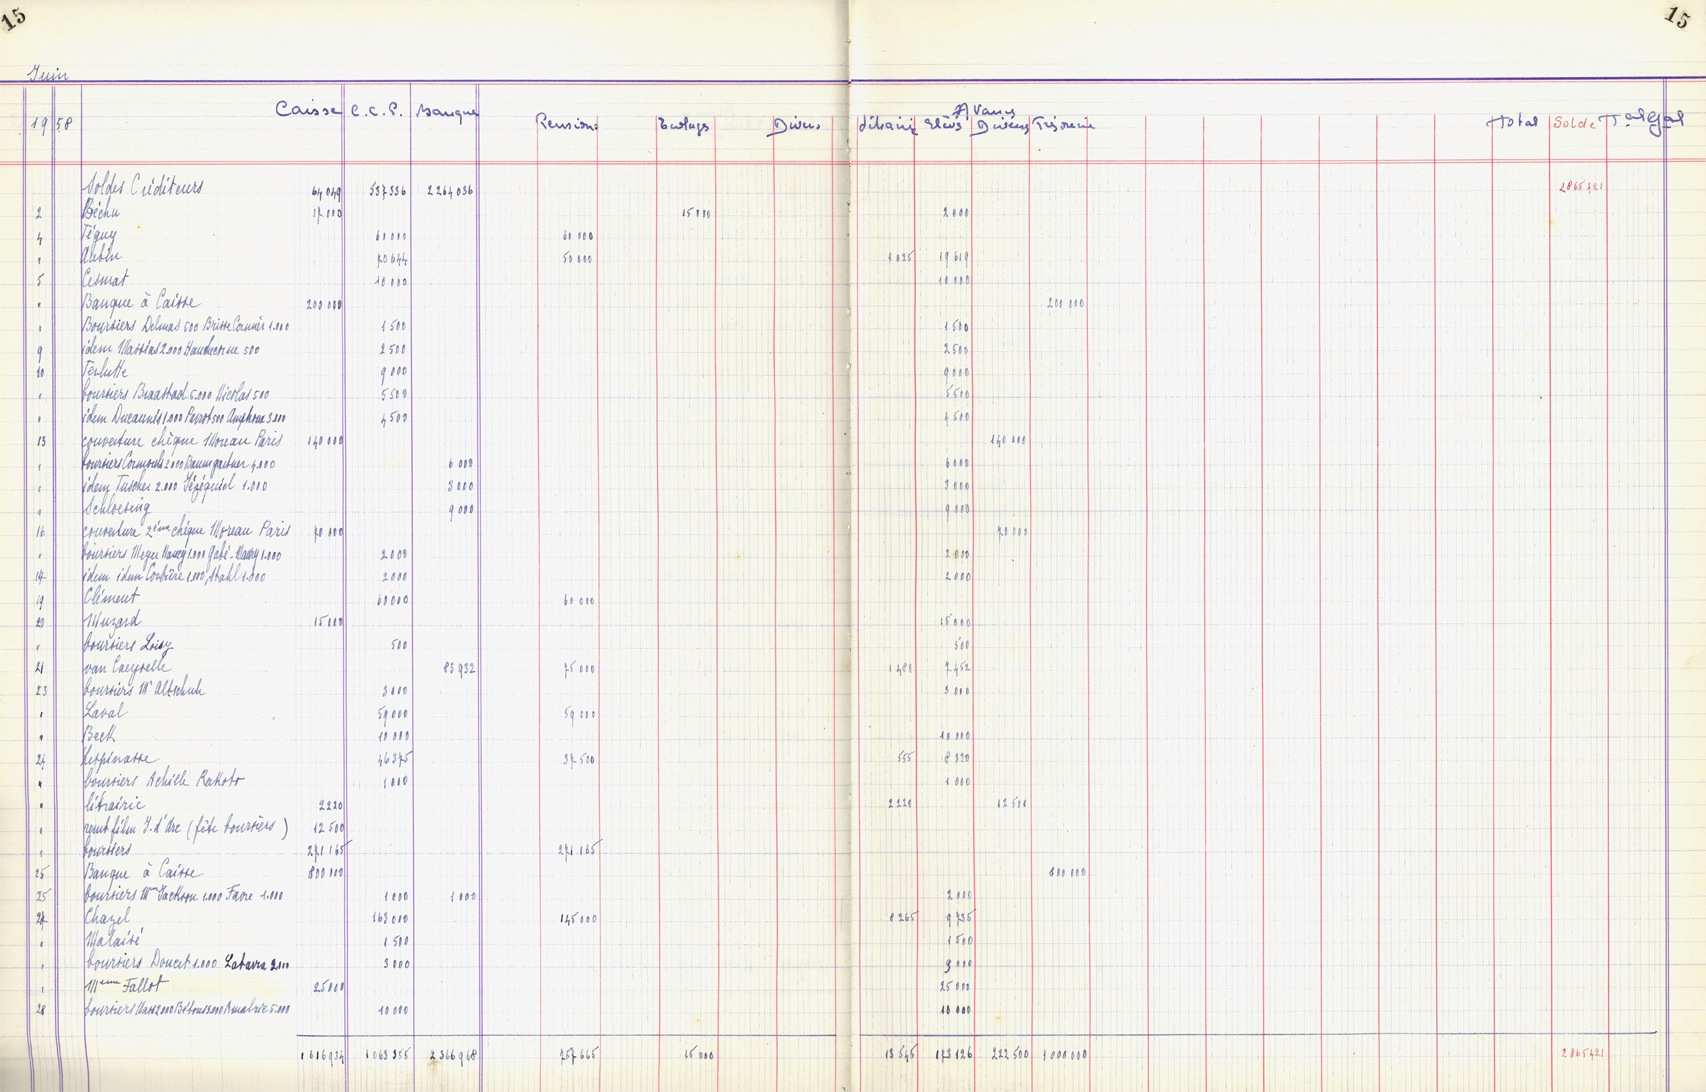 15 15
Juin
1958 Caisse C.C.P. Banque Pensions Ecolages Divers librairie Elèves Avances Divers Trésorerie Total Solde Total Gal
Soldes Créditeurs 64 049 537 336 2 264 036 2865 421
2 Béchu 17 000 15 000 2 000
4 Téguy 60 000 60 000
" Aubin 70 644 50 000 1 025 19 619
5 Cesmat 10 000 10 000
" Banque à Caisse 200 000 200 000
" Boursiers Delmas 500 1.000 1 500 1 500
9 idem 2.000 500 2 500 2 500
10 9 000 9 000
" boursiers Braastad 5.000, Nicolas 500 5 500 5 500
" idem 1.000 Perrot 500 3.000 4 500 4 500
13 couverture chèque Moreau Paris 140 000 140 000
" boursiers 2.000 Baumgartner 4.000 6 000 6 000
" idem Tuscher 2.000 Jézéquiel 1.000 3 000 3 000
" Schloesing 9 000 9 000
16 couverture 2ème chèque Moreau Paris 70 000 70 000
" boursiers Meyer Nancy 1.000 1.000 2 000 2 000
17 idem idem 1.000, Stahl 1.000 2 000 2 000
19 Clément 60 000 60 000
20 Muzard 15 000 15 000
" boursiers Loisy 500 500
21 van Caeyselle 83 932 75 000 1 480 7 452
23 boursiers Mr Altschuh 3 000 3 000
" Laval 59 000 59 000
" Beck 10 000 10 000
24 Lespinasse 46 375 37 500 555 8 320
" boursiers Achille Rakoto 1 000 1 000
" librairie 2220 2 220 12 500
" rembt film J. d'Arc (fête boursiers) 12 500
" boursiers 271 165 271 165
25 Banque à Caisse 800 000 800 000
25 boursiers Mme Jackson 1.000 Favre 1.000 1 000 1 000 2 000
27 Chazel 163 000 145 000 8 265 9 735
" Malaité 1 500 1 500
" boursiers Doucet 1.000 Latarra 2.000 3 000 3 000
" Mme Fallot 25 000 25 000
28 boursiers 2.000 3.000 5.000 10 000 10 000
1 616 934 1 063 355 2 366 968 757 665 15 000 13 545 173 126 222 500 1 000 000 2 865 421